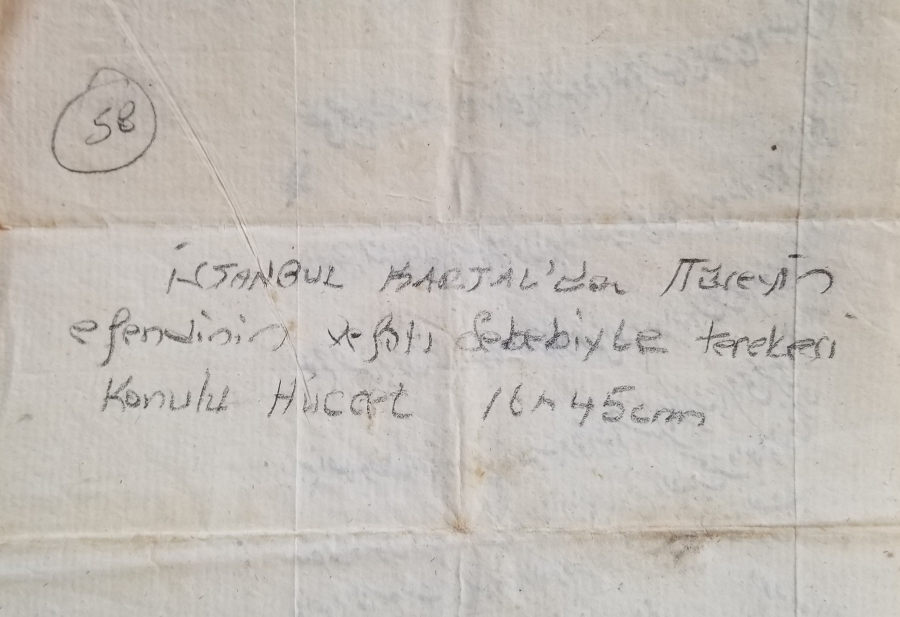 58
İSTANBUL KARTAL'da Hüseyin
efendinin vefatı sebebiyle terekesi
Konulu Hüccet 16x45cm